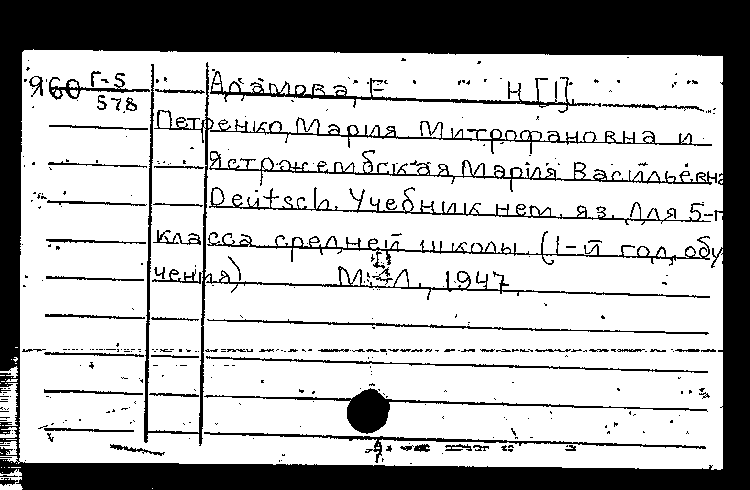 Я60 Г-5/578 Адамова, Е Н [1]
Петренко, Мария Митрофановна и
Ястржембская, Мария Васильевна
Deutsch. Учебник нем. яз. для 5-г
класса средней школы. (1-й год обу
чения) М.-Л., 1947